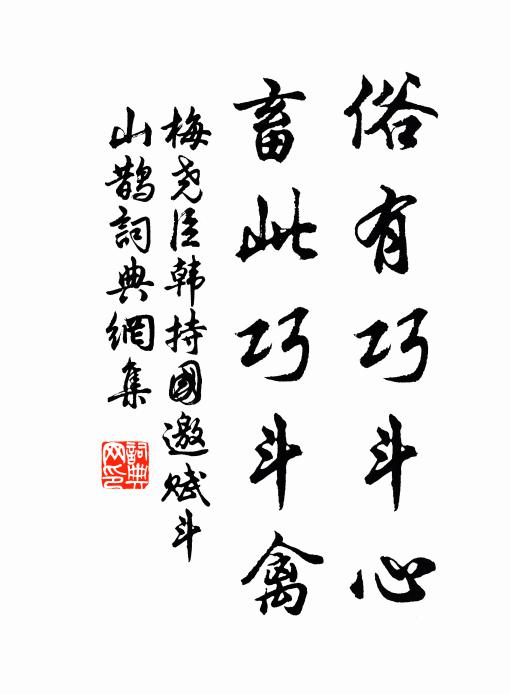 俗有巧斗心
畜此巧斗禽
梅尧臣韩持國邀赋斗
山鹊詞典網集
詞典网印